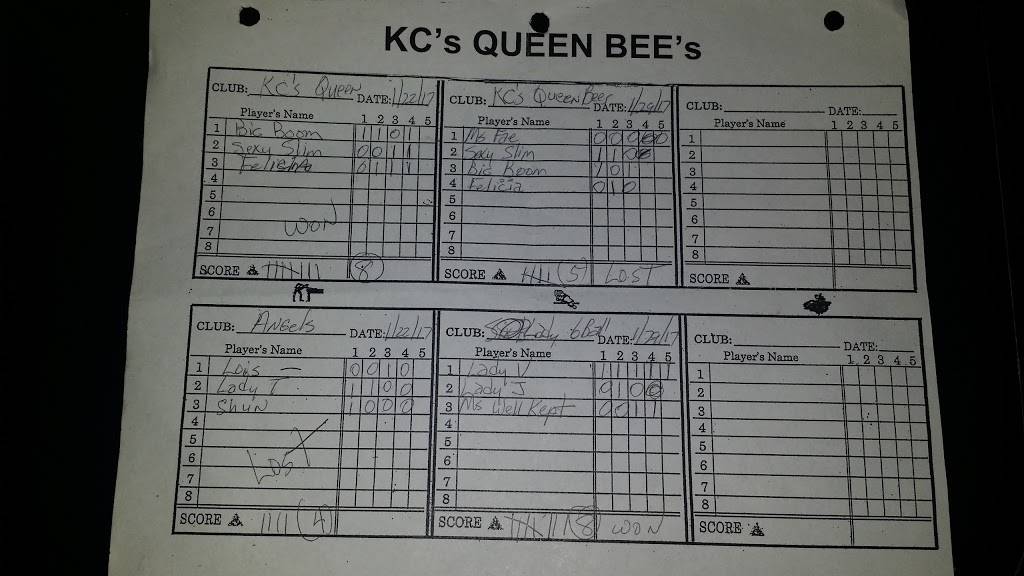 KC's QUEEN BEE's
CLUB: KC's Queen DATE: 1/22/17
Player's Name 1 2 3 4 5
1 Big Boom 1 1 0 1
2 Sexy Slim 0 0 1 1
3 Felicia 0 1 1 1
4
5
6 WON
7
8
SCORE (8)
CLUB: KC's Queen Bees DATE: 1/29/17
Player's Name 1 2 3 4 5
1 Ms Fae 0 0 0 0 0
2 Sexy Slim 1 1 0
3 Big Boom 1 0 1
4 Felicia 0 1 0
5
6
7
8
SCORE (5) LOST
CLUB: DATE:
Player's Name 1 2 3 4 5
1
2
3
4
5
6
7
8
SCORE
CLUB: Angels DATE: 1/22/17
Player's Name 1 2 3 4 5
1 Lois — 0 0 1 0
2 Lady T 1 1 0 0
3 Shun 1 0 0 0
4
5
6 LOST
7
8
SCORE (4)
CLUB: Lady DATE: 1/29/17
Player's Name 1 2 3 4 5
1 Lady V 1 1 1 1 1
2 Lady J 0 1 0 0
3 Ms Well Kept 0 0 1 1
4
5
6
7
8
SCORE (8) WON
CLUB: DATE:
Player's Name 1 2 3 4 5
1
2
3
4
5
6
7
8
SCORE